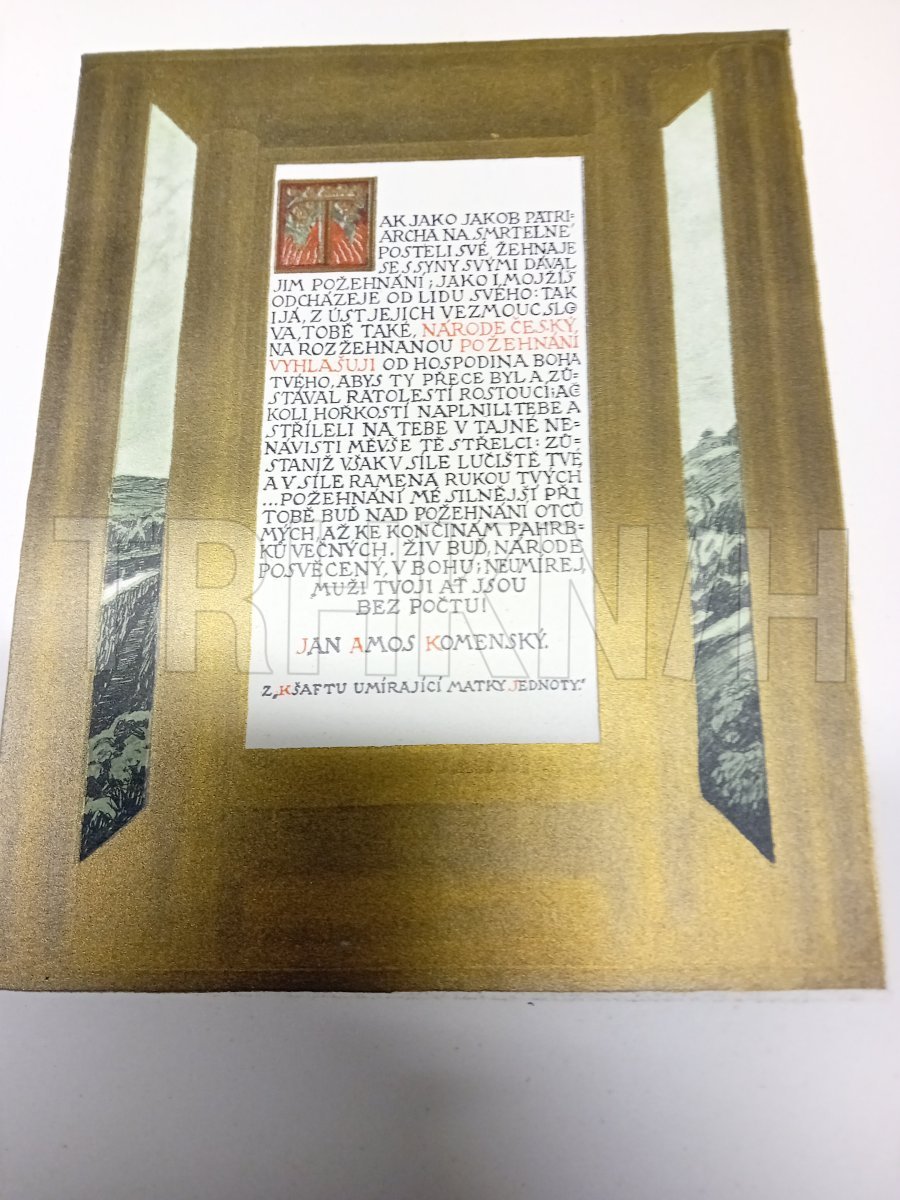 TAK JAKO JAKOB PATRI=
ARCHA NA SMRTELNÉ
POSTELI SVÉ, ŽEHNAJE
SE S SYNY SVÝMI DÁVAL
JIM POŽEHNÁNÍ; JAKO I MOJŽÍŠ
ODCHÁZEJE OD LIDU SVÉHO: TAK
I JÁ, Z ÚST JEJICH VEZMOUC SLO
VA, TOBĚ TAKÉ, NÁRODE ČESKÝ,
NA ROZŽEHNANOU POŽEHNÁNÍ
VYHLAŠUJI OD HOSPODINA BOHA
TVÉHO, ABYS TY PŘECE BYL A ZŮ=
STÁVAL RATOLESTÍ ROSTOUCÍ; AČ
KOLI HOŘKOSTÍ NAPLNILI TEBE A
STŘÍLELI NA TEBE V TAJNÉ NE=
NÁVISTI MĚVŠE TĚ STŘELCI: ZŮ=
STANIŽ VŠAK V SÍLE LUČIŠTĚ TVÉ
A V SÍLE RAMENA RUKOU TVÝCH
...POŽEHNÁNÍ MÉ SILNĚJŠÍ PŘI
TOBĚ BUĎ NAD POŽEHNÁNÍ OTCŮ
MÝCH, AŽ KE KONČINÁM PAHRB=
KŮ VĚČNÝCH. ŽIV BUĎ, NÁRODE
POSVĚCENÝ, V BOHU; NEUMÍREJ,
MUŽI TVOJI AŤ JSOU
BEZ POČTU!
JAN AMOS KOMENSKÝ.
Z „KŠAFTU UMÍRAJÍCÍ MATKY JEDNOTY."
TRHKNIH